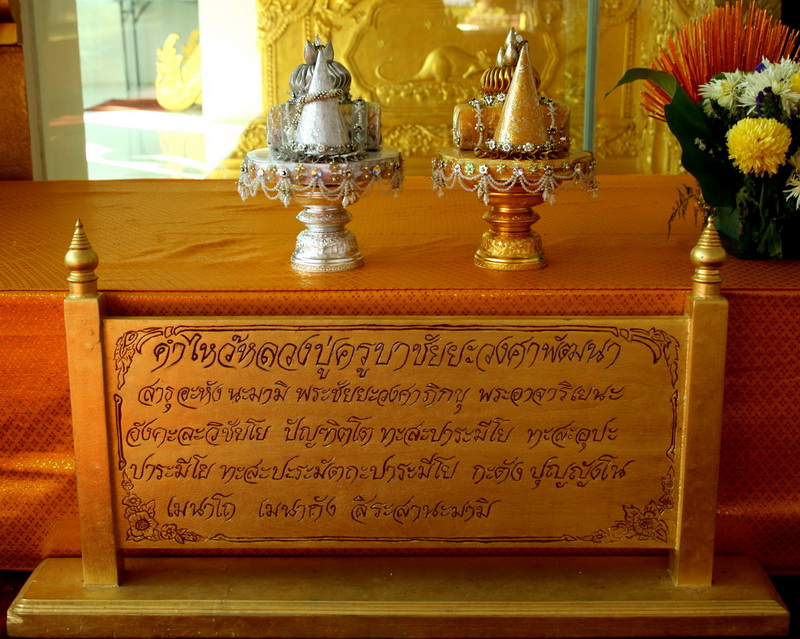 คำไหว้หลวงปู่ครูบาชัยยะวงศาพัฒนา
สาธุอะหัง นะมามิ พระชัยยะวงศาภิกขุ พระอาจาริเยนะ
อังคะละวิชัยโย ปัญฑิตโต ทะสะปาระมีโย ทะสะอุปะ
ปาระมีโย ทะสะปะระมัตถะปาระมีโย กะตัง ปุญญังโน
เมนาโถ เมนาถัง สิระสานะมามิ